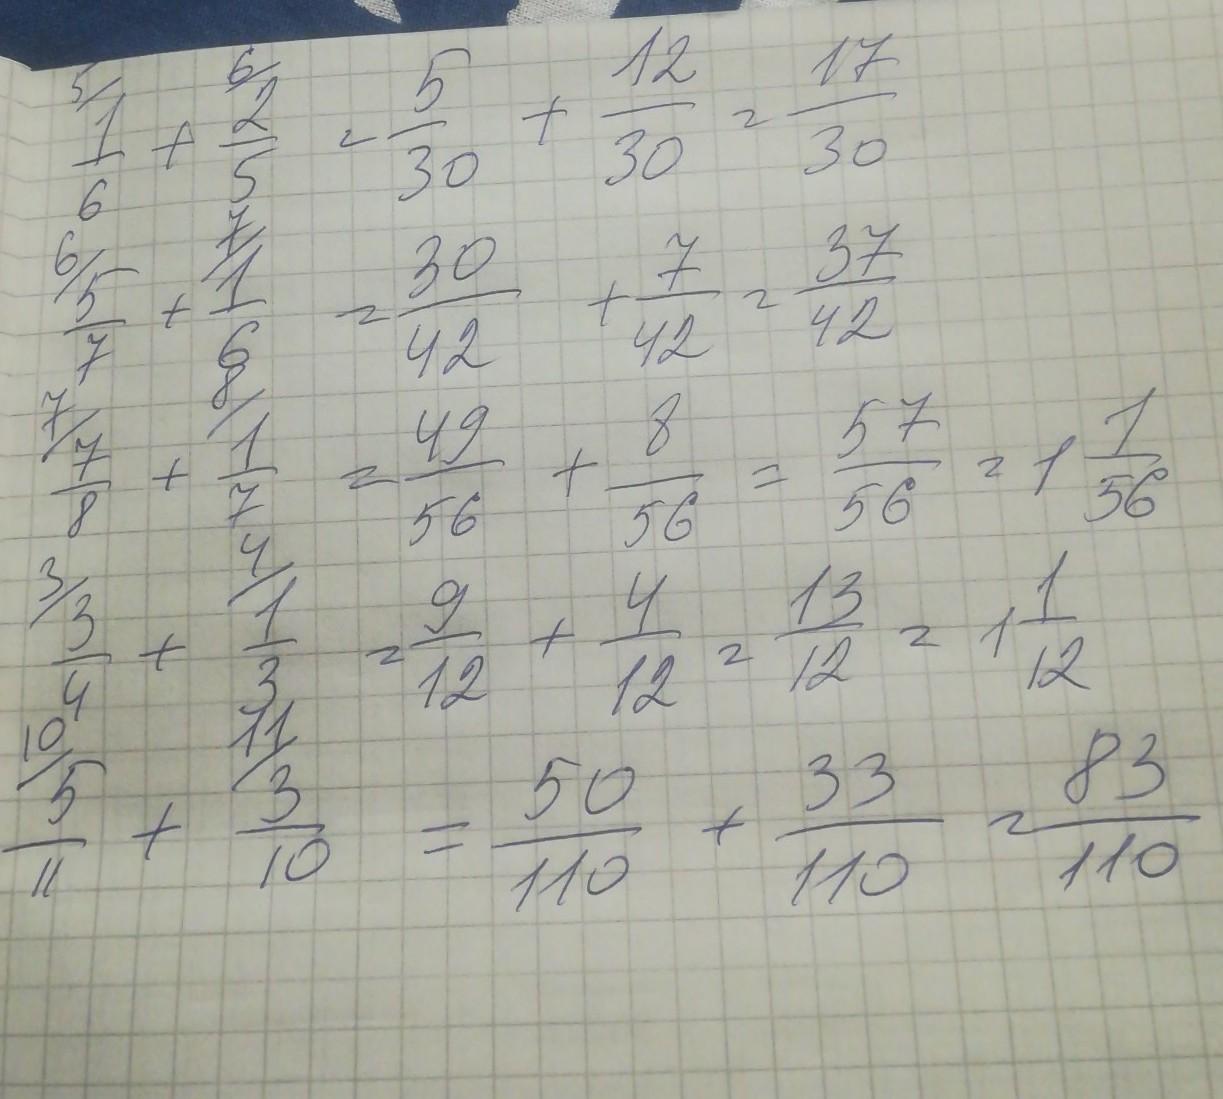 5/ 1/6 + 6/ 2/5 = 5/30 + 12/30 = 17/30
6/ 5/7 + 7/ 1/6 = 30/42 + 7/42 = 37/42
7/ 7/8 + 8/ 1/7 = 49/56 + 8/56 = 57/56 = 1 1/56
3/ 3/4 + 4/ 1/3 = 9/12 + 4/12 = 13/12 = 1 1/12
10/ 5/11 + 11/ 3/10 = 50/110 + 33/110 = 83/110